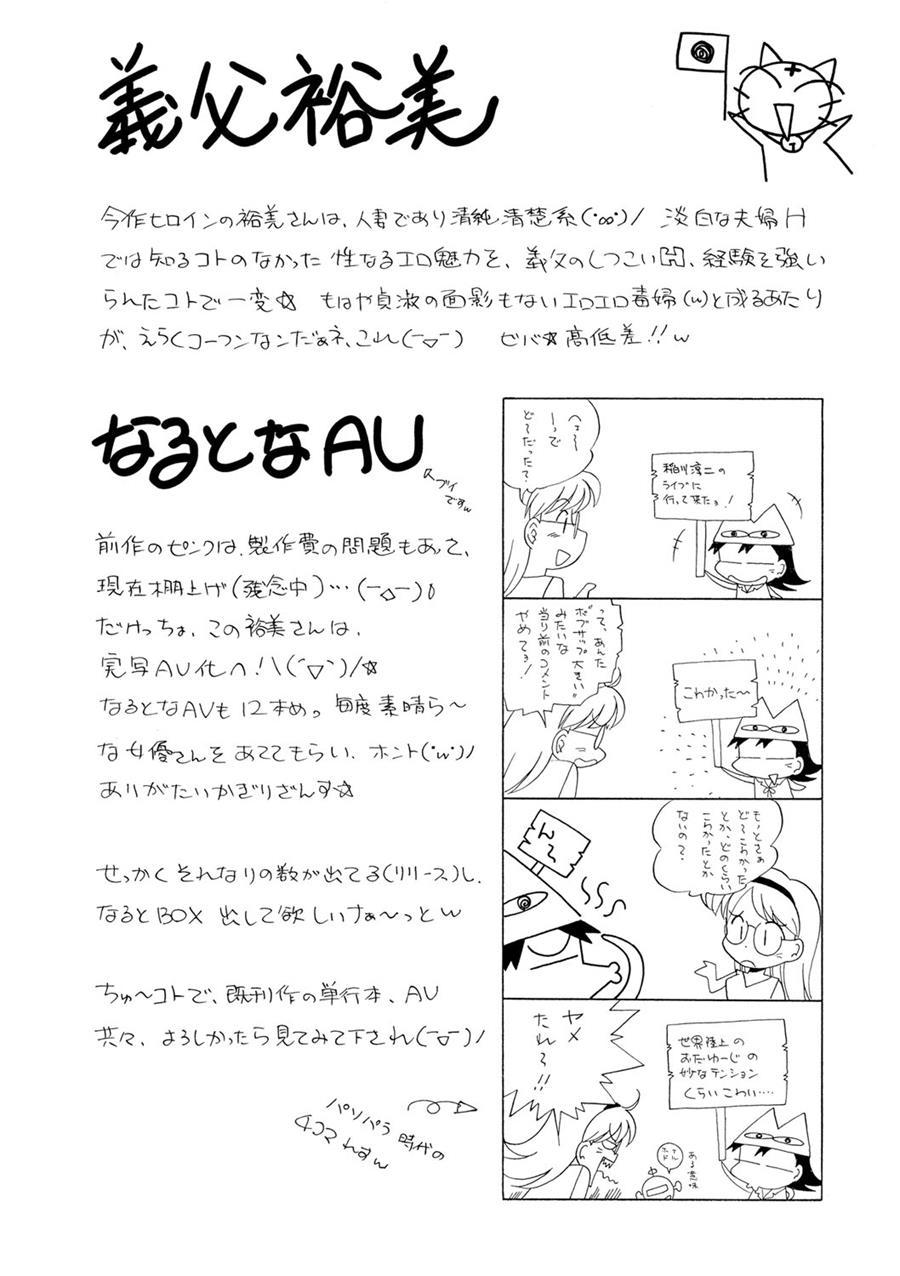 義父裕美
今作ヒロインの裕美さんは、人妻であり清純清楚系(°∞°)/ 淡白な夫婦H
では知るコトのなかった 性なるエロ魅力を、義父のしつこい 、経験を強い
られたコトで一変☆ もはや貞淑の面影もないエロエロ毒婦(w)と成るあたり
が、えらくコーフンなンだぁネ、これ(ー▽ー) ビバ☆高低差!!w
なるとなAU
ですw
前作のピンクは、製作費の問題もあって、
現在棚上げ(残念中)…(ー△ー)
だけっちょ、この裕美さんは、
実写AV化へ!\(´▽`)/☆
なるとなAVも12本めっ 毎度素晴ら〜
な女優さんをあててもらい、ホント(°w°)/
ありがたいかぎりざんす☆
せっかくそれなりの数が出てる(リリース)し、
なるとBOX 出して欲しいけぁ〜っとw
ちゅ〜コトで、既刊作の単行本、AV
共々、よろしかったら見てみて下され(ー▽ー)/
パソパラ時代の
4コマ ですw
稲川淳二の
ライブに
行って来たョ!
へぇ〜
ーっで
ど〜だった?
こわかった〜
って、あんた
ボブサップ大きい"
みたいな
当り前のコメント
やめてョ!
もっとさぁ
ど〜こわかった
とか、どのくらい
こわかったとか
ないの?
ん〜
世界陸上の
おだゆーじの
妙なテンション
くらいこわい…
ヤメ
たれ〜!!
ある意味